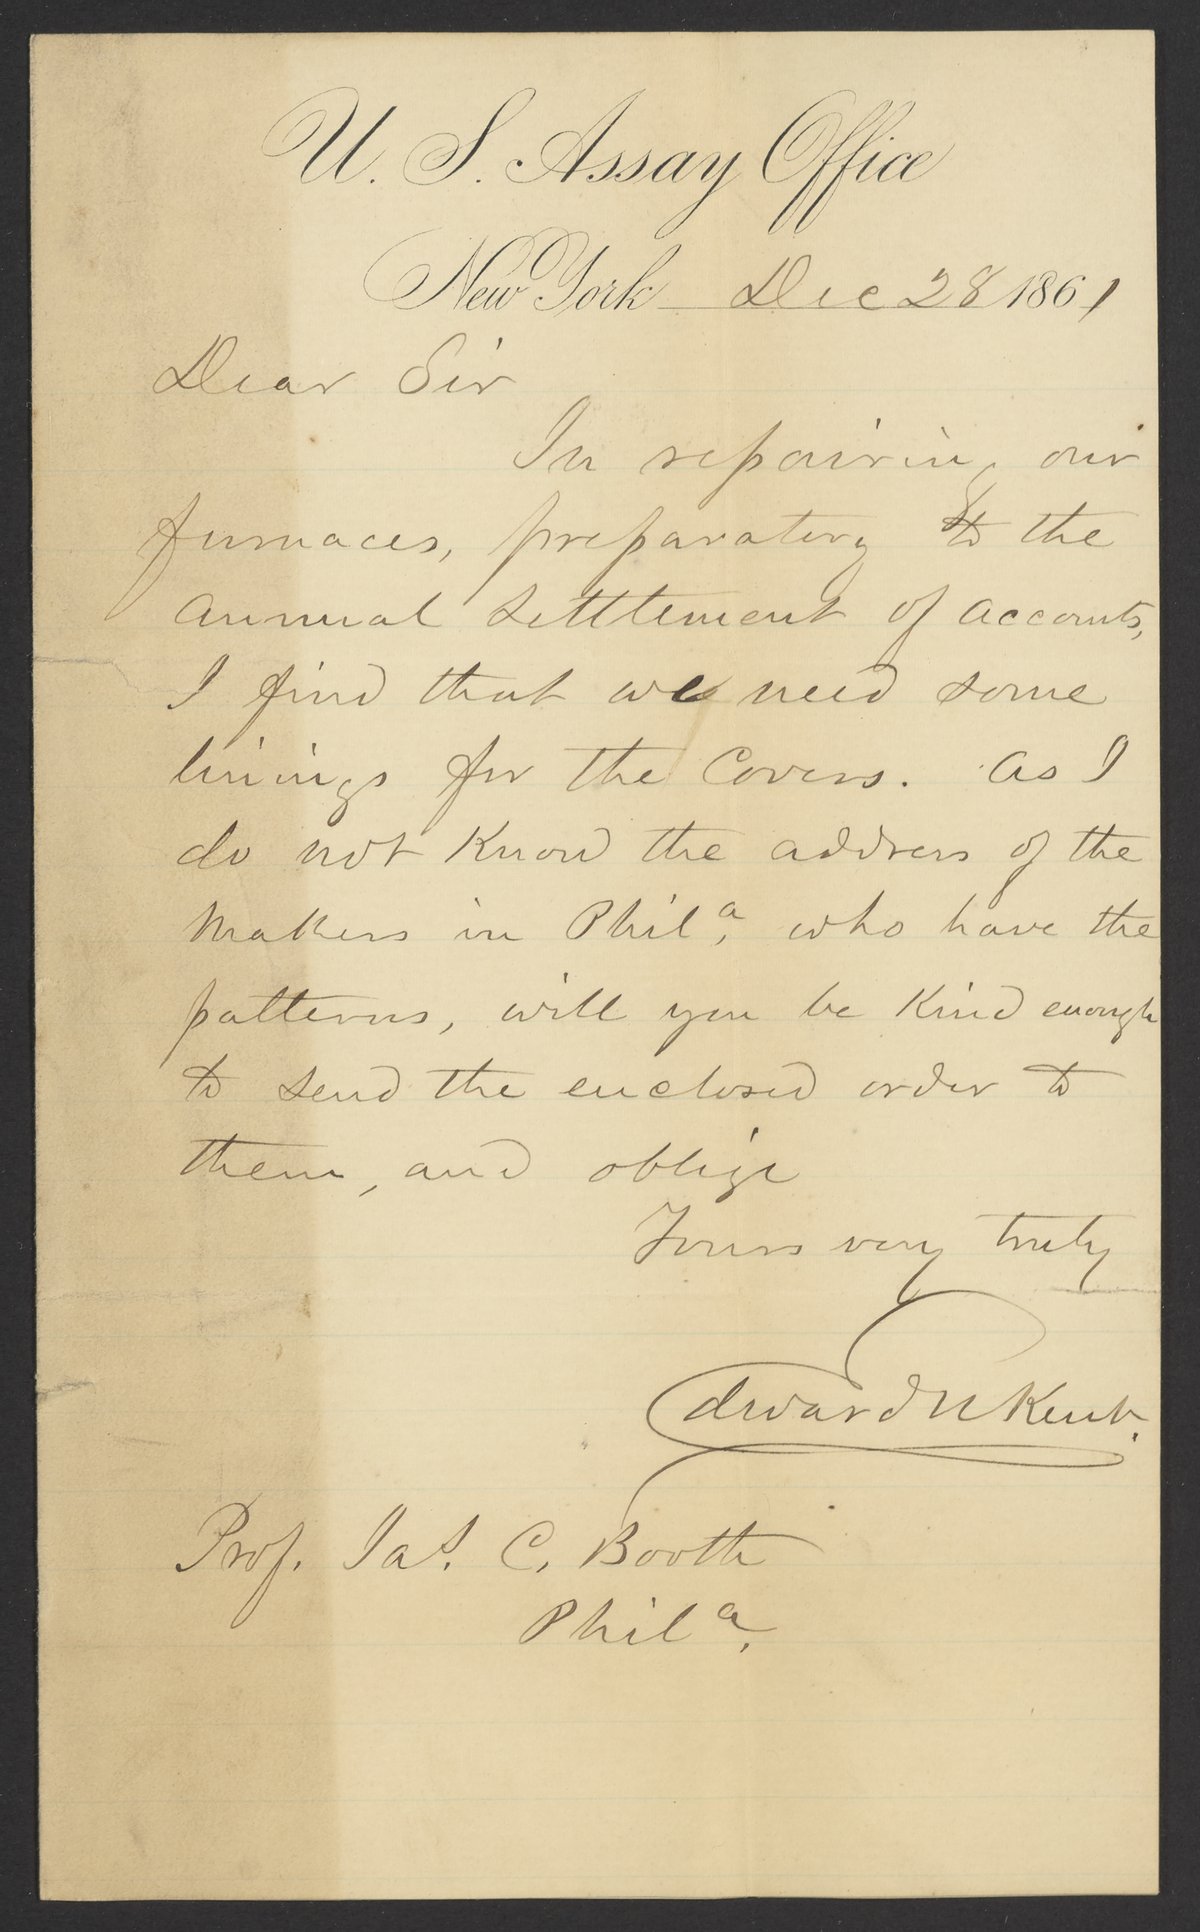 U. S. Assay Office
New York Dec 28 1861
Dear Sir
In repairing our
furnaces, preparatory to the
annual settlement of accounts,
I find that we need some
linings for the Covers. As I
do not Know the address of the
Makers in Phila, who have the
patterns, will you be Kind enough
to send the enclosed order to
them, and oblige
Yours very truly
Edward N Kent.
Prof. Jas. C. Booth
Phila.